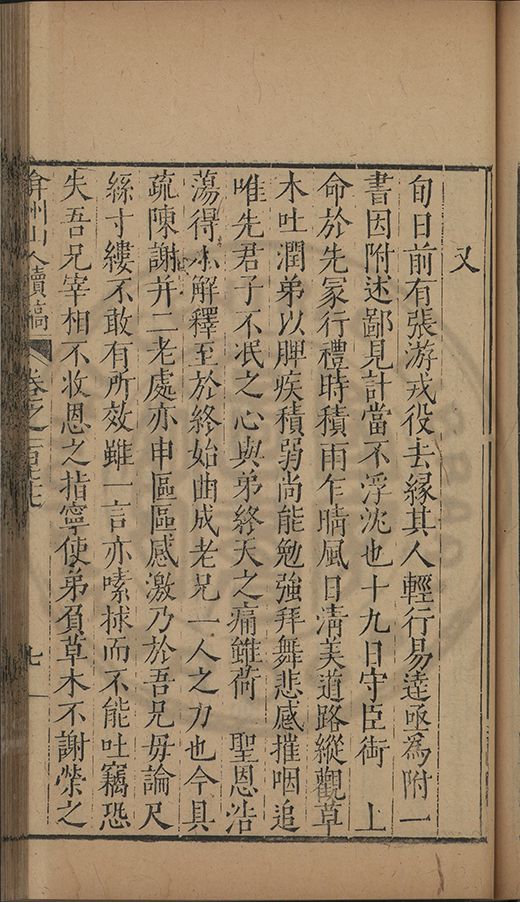 又
旬日前有張游戎役去緣其人輕行易達亟爲附一
書因附述鄙見計當不浮沈也十九日守臣銜 上
命於先冢行禮時積雨乍晴風日清美道路縱觀草
木吐潤弟以脾疾積弱尚能勉強拜舞悲感摧咽追
唯先君子不泯之心與弟終天之痛雖荷 聖恩浩
蕩得小解釋至於終始曲成老兄一人之力也今具
疏陳謝并二老處亦申區區感激乃於吾兄毋論尺
絲寸縷不敢有所效雖一言亦嗉捄而不能吐竊恐
失吾兄宰相不收恩之指寧使弟負草木不謝榮之
弇州山人續稿 卷之一百七十七 七